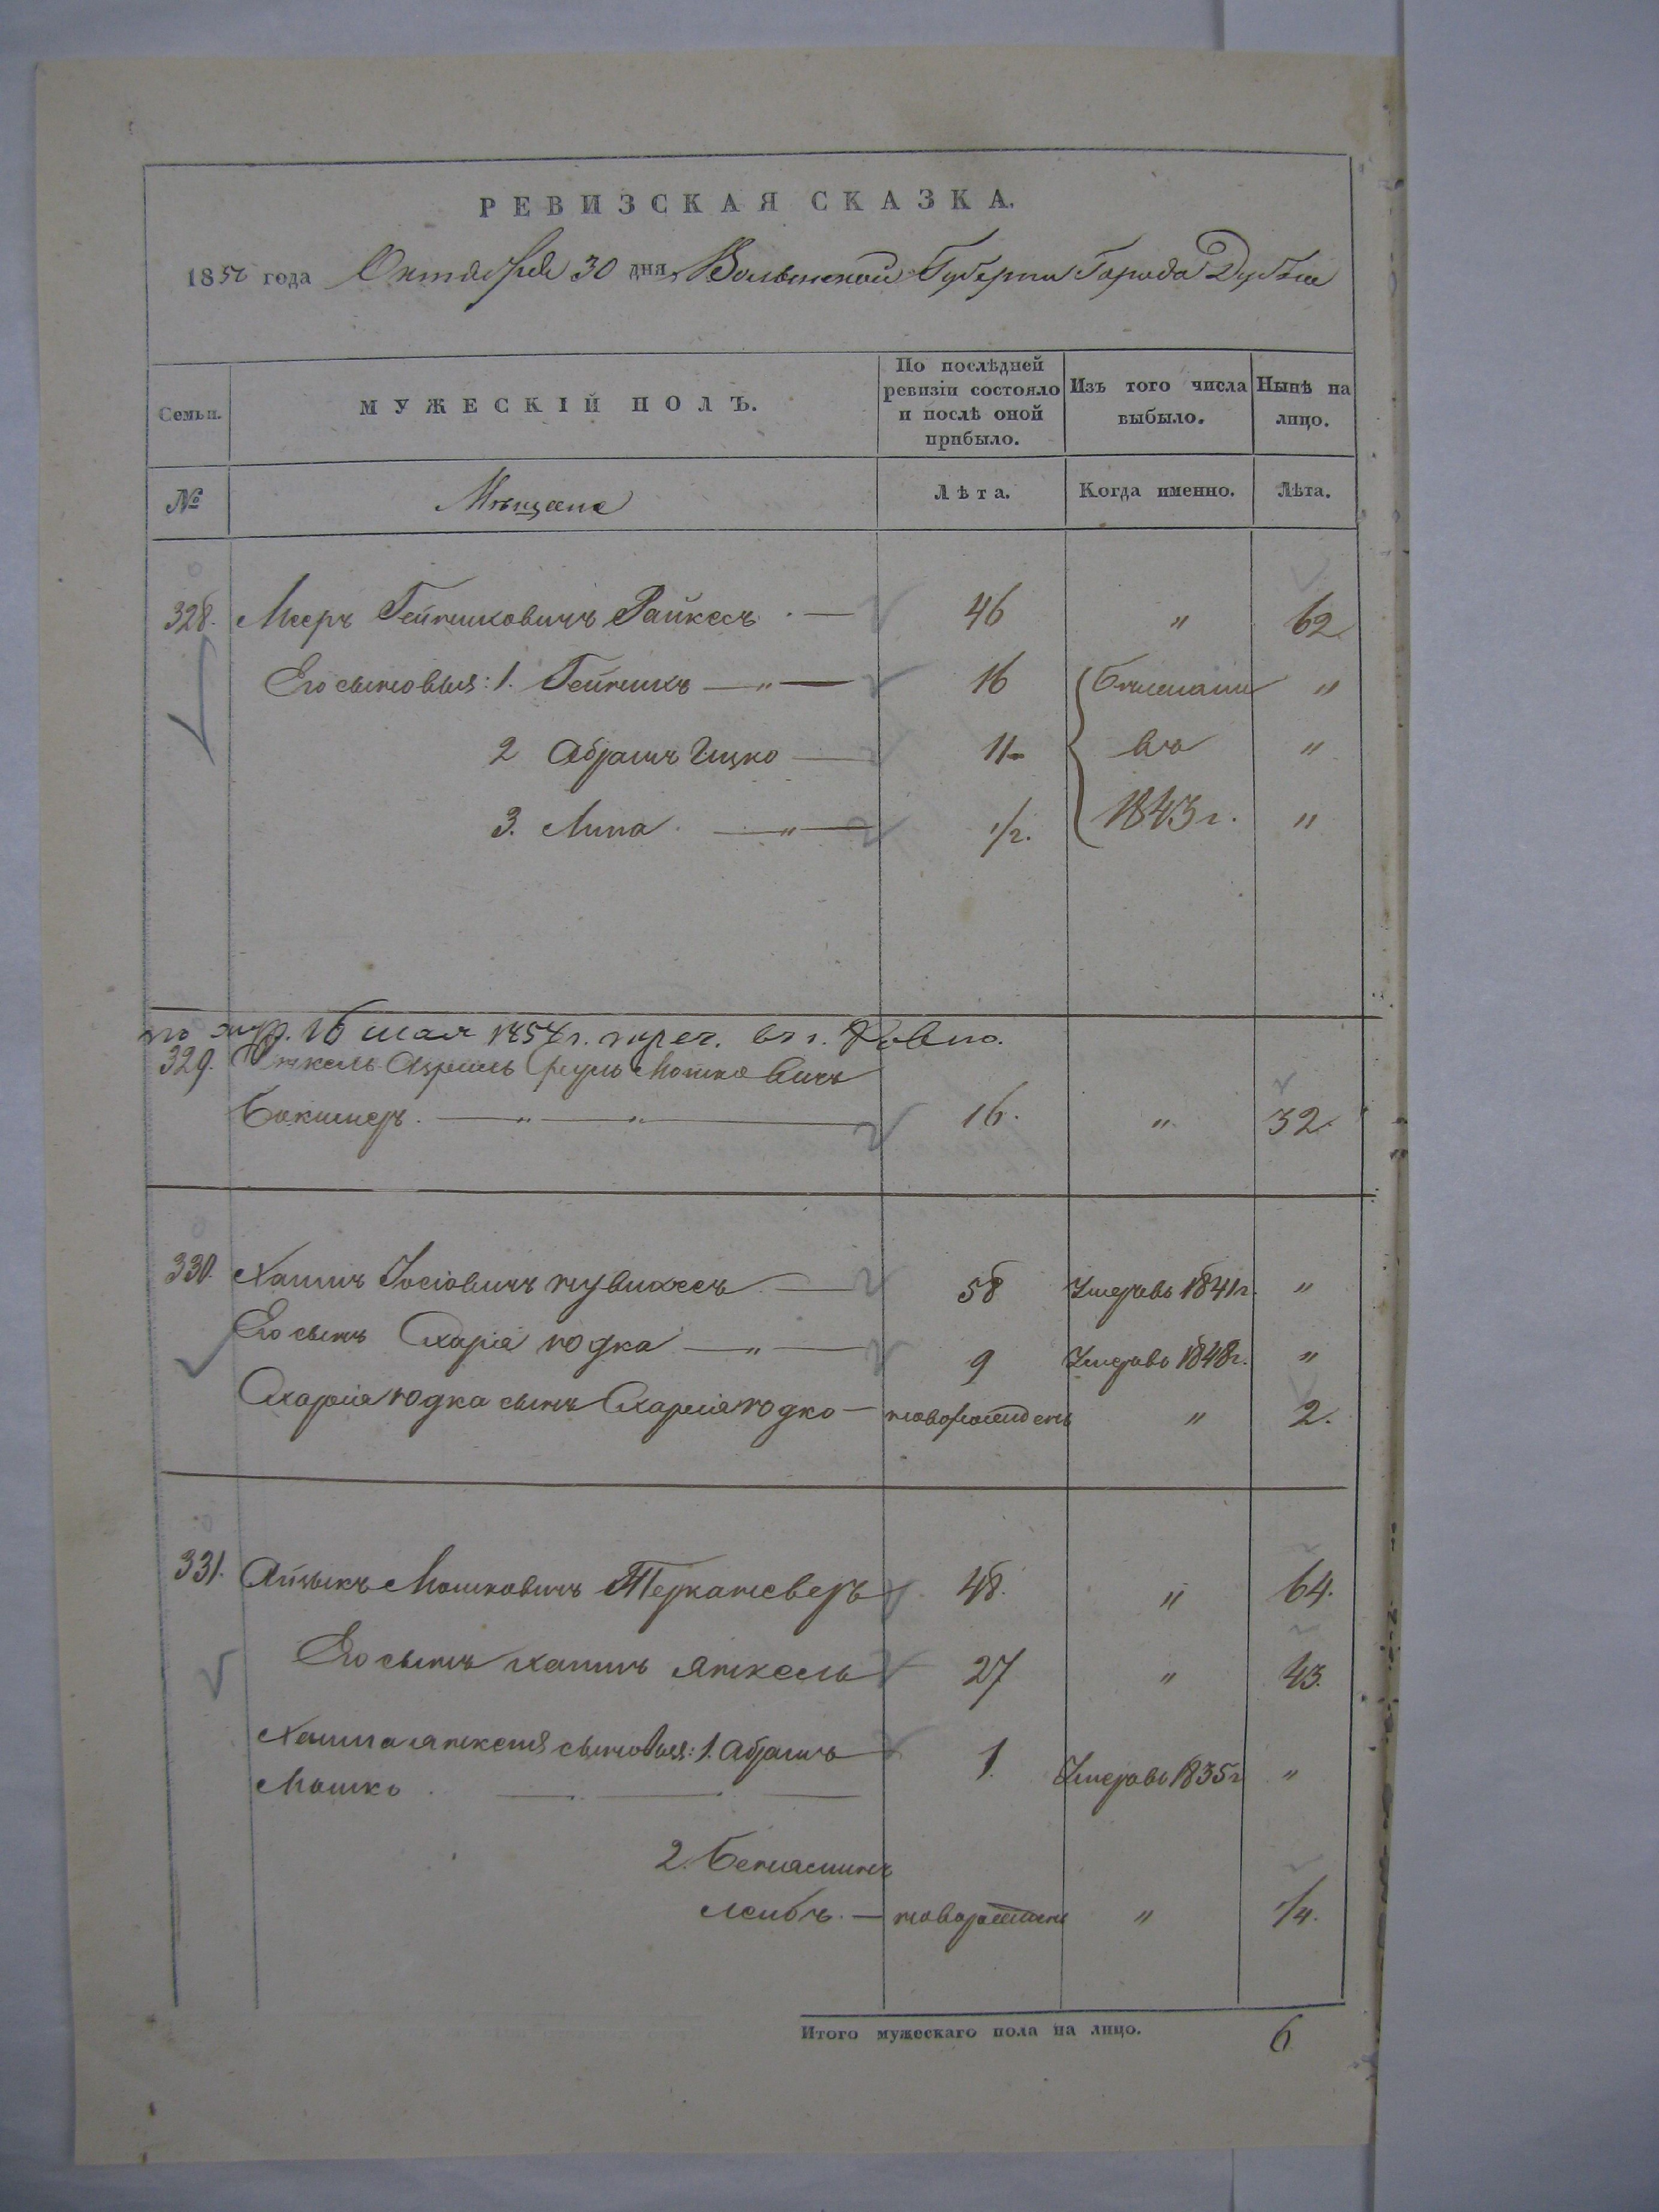 РЕВИЗСКАЯ СКАЗКА.
1850 года Октября 30 дня Волынской Губернии Города Дубна
Семьи. МУЖЕСКІЙ ПОЛЪ. По послѣдней ревизіи состояло и послѣ оной прибыло. Изъ того числа выбыло. Нынѣ на лицо.
№ Мѣщане Лѣта. Когда именно. Лѣта.
328. Мееръ Гейниховичъ Райхесъ 46 " 62
Его сыновья: 1. Гейнихъ — " — 16 Отчислены "
2 Абрамъ Ицко 11 въ "
3. Липа — " — 1/2. 1843 г. "
16 мая 1854 г. в г.
329. Мошковичъ
16. " 32.
330. Хаимъ Іосіовичъ 58 Умеръ въ 1841 г. "
Его сынъ Юдка — " — 9 Умеръ въ 1848 г. "
Юдка сынъ Юдко — новорожденъ " 2.
331. Айзыкъ Мошковичъ 48. " 64.
Его сынъ Хаимъ Янкель 27 " 43.
Хаима Янкеля сыновья: 1. Абрамъ
Мошко 1. Умеръ въ 1835 г "
2. Бениаминъ
Лейбъ. — новорожденъ " 1/4.
Итого мужескаго пола на лицо. 6